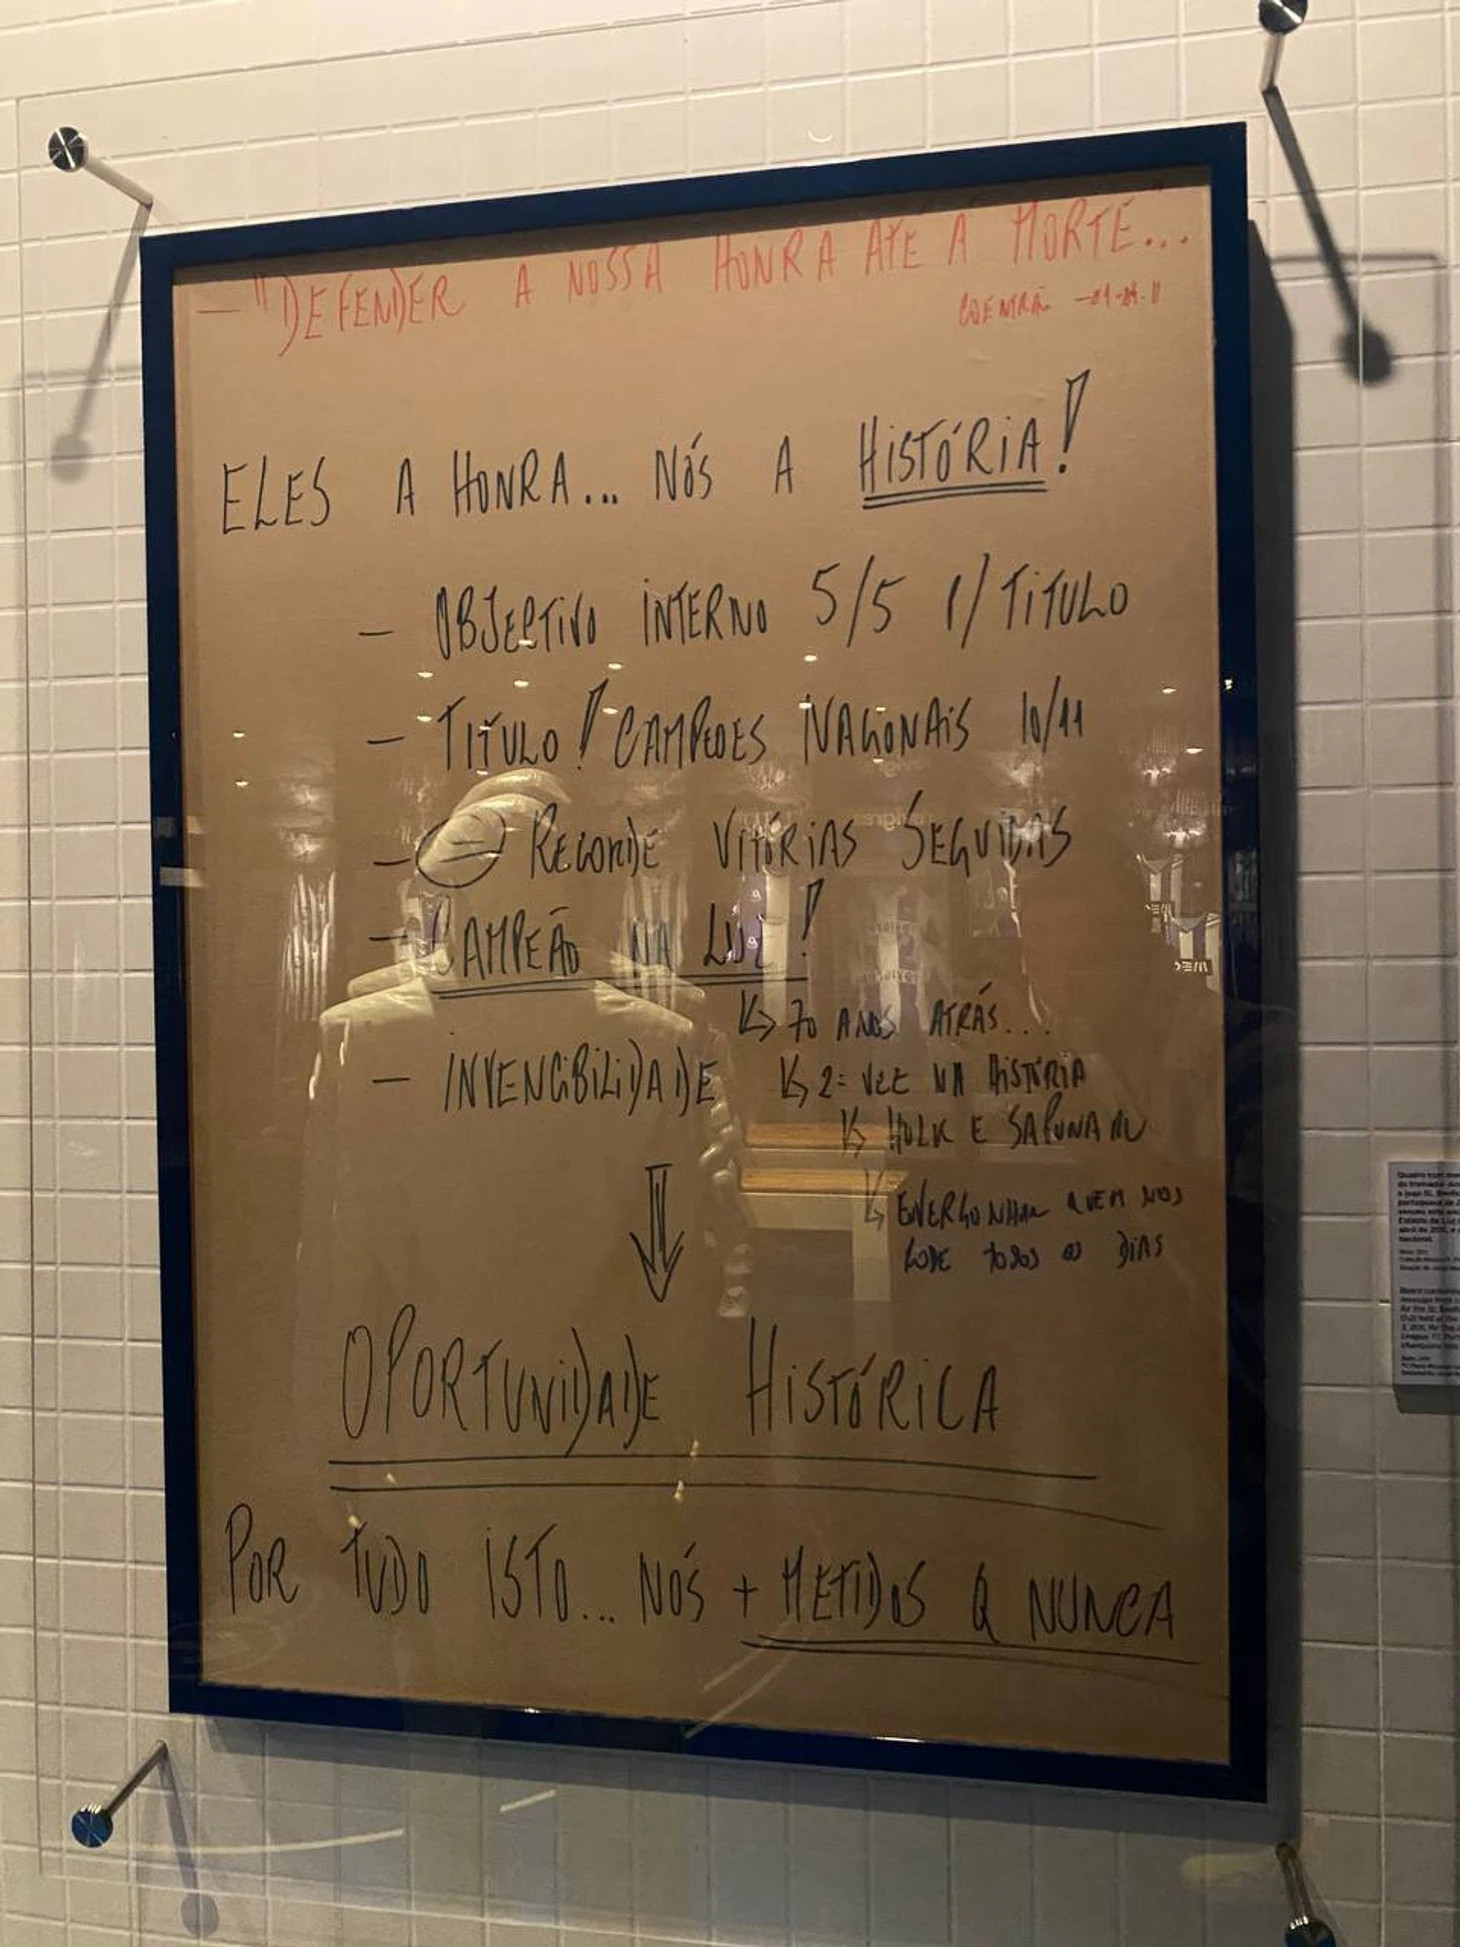 — "DEFENDER A NOSSA HONRA ATÉ À MORTE..."
COENTRÃO
ELES A HONRA... NÓS A HISTÓRIA!
— OBJECTIVO INTERNO 5/5 P/ TITULO
— TITULO! CAMPEOES NACIONAIS 10/11
— RECORDE VITÓRIAS SEGUIDAS
— CAMPEÃO NA LUZ!
↳ 70 ANOS ATRÁS...
— INVENCIBILIDADE
↳ 2ª VEZ NA HISTÓRIA
↳ HULK E SAPUNARU
↳ ENVERGONHAR QUEM NOS
FODE TODOS OS DIAS
⇓
OPORTUNIDADE HISTÓRICA
POR TUDO ISTO... NÓS + METIDOS Q NUNCA